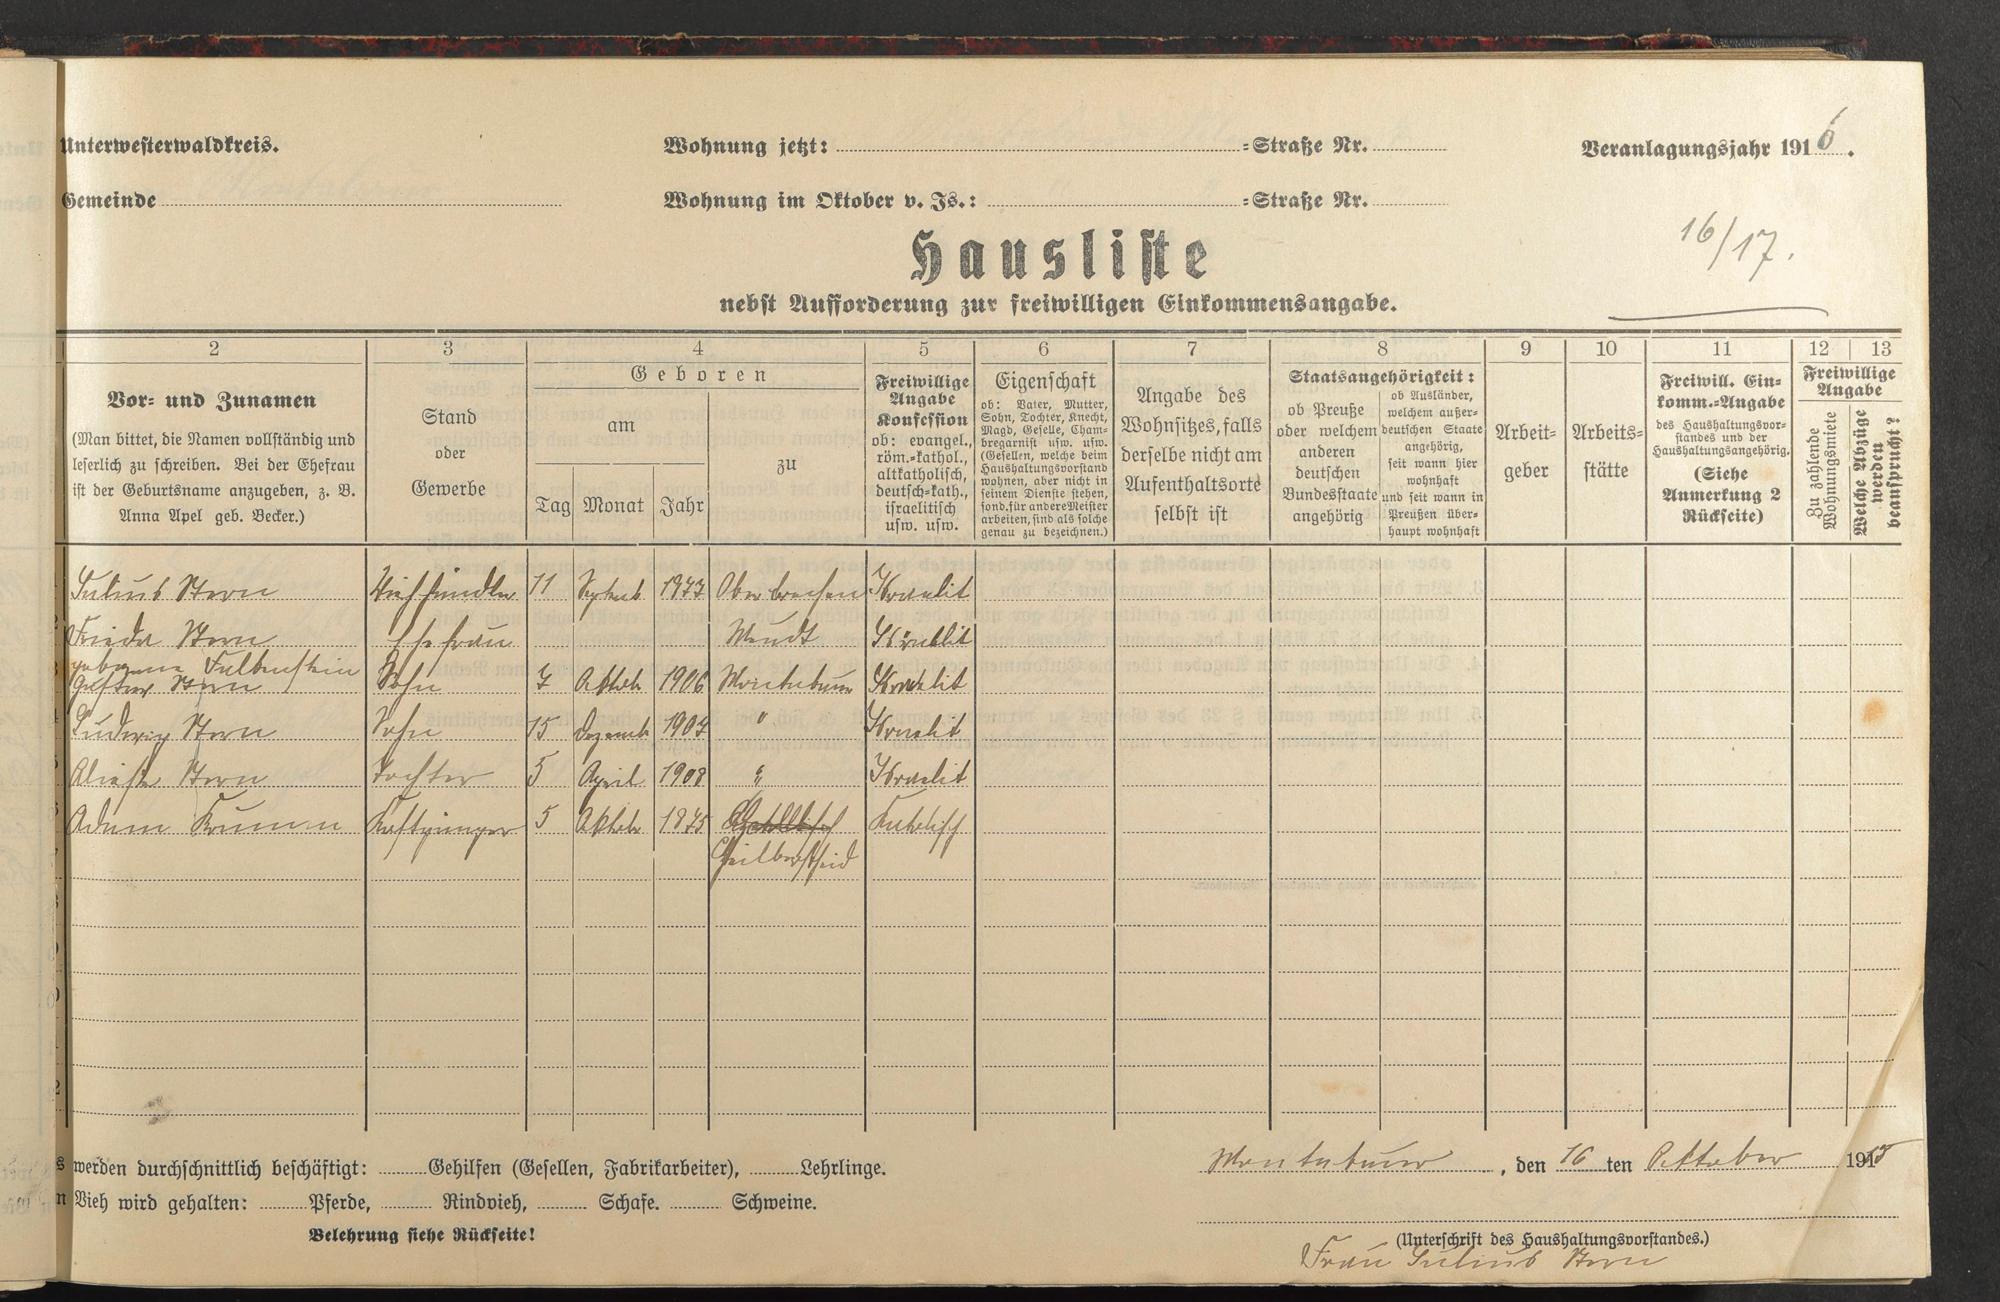 Unterwesterwaldkreis.
Wohnung jetzt: =Straße Nr.
Veranlagungsjahr 1916.
Gemeinde
Wohnung im Oktober v. Js.: =Straße Nr.
16/17.
Hausliste
nebst Aufforderung zur freiwilligen Einkommensangabe.
2 3 4 5 6 7 8 9 10 11 12 13
Vor- und Zunamen
(Man bittet, die Namen vollständig und
leserlich zu schreiben. Bei der Ehefrau
ist der Geburtsname anzugeben, z. B.
Anna Apel geb. Becker.)
Stand
oder
Gewerbe
Geboren
am
zu
Tag Monat Jahr
Freiwillige
Angabe
Konfession
ob: evangel.,
röm.-kathol.,
altkatholisch,
deutsch-kath.,
israelitisch
usw. usw.
Eigenschaft
ob: Vater, Mutter,
Sohn, Tochter, Knecht,
Magd, Geselle, Cham-
bregarnist usw. usw.
(Gesellen, welche beim
Haushaltungsvorstand
wohnen, aber nicht in
seinem Dienste stehen,
sond. für andere Meister
arbeiten, sind als solche
genau zu bezeichnen.)
Angabe des
Wohnsitzes, falls
derselbe nicht am
Aufenthaltsorte
selbst ist
Staatsangehörigkeit:
ob Preuße
oder welchem
anderen
deutschen
Bundesstaate
angehörig
ob Ausländer,
welchem außer-
deutschen Staate
angehörig,
seit wann hier
wohnhaft
und seit wann in
Preußen über-
haupt wohnhaft
Arbeit-
geber
Arbeits-
stätte
Freiwill. Ein-
komm.-Angabe
des Haushaltungsvor-
standes und der
Haushaltungsangehörig.
(Siehe
Anmerkung 2
Rückseite)
Freiwillige
Angabe
Zu zahlende
Wohnungsmiete
Welche Abzüge
werden
beansprucht?
Julius Stern Viehhändler 11 Septemb 1877 Oberbrechen Israelit
Frieda Stern Ehefrau Meudt Israelit
geborene Falkenstein
Gustav Stern Sohn 7 Oktob 1906 Montabaur Israelit
Ludwig Stern Sohn 15 Dezemb 1907 " Israelit
Stern Tochter 5 April 1908 " Israelit
Adam 5 Oktob 1875 Katolisch
werden durchschnittlich beschäftigt: Gehilfen (Gesellen, Fabrikarbeiter), Lehrlinge.
Vieh wird gehalten: Pferde, Rindvieh, Schafe. Schweine.
Belehrung siehe Rückseite!
Montabaur, den 16 ten Oktober 1915
(Unterschrift des Haushaltungsvorstandes.)
Frau Julius Stern